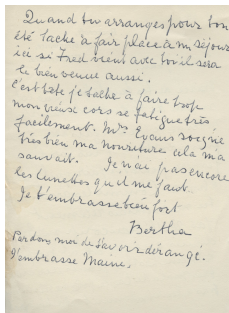 Quand tu arranges pour ton
été tache a fair place a un séjour
ici si Fred vient avec toi il sera
le bien venue aussi.
C'est bete je tache a faire trop
mon vieux cors se fatigue très
facilement. Mrs Evans soigne
très bien ma nourriture cela m'a
sauvait. Je n'ai pas encore
les lunettes qu'il me faut
Je t'embrasse bien fort
Bertha
Pardons moi de t'avoir dérangé.
J'embrasse Maine.